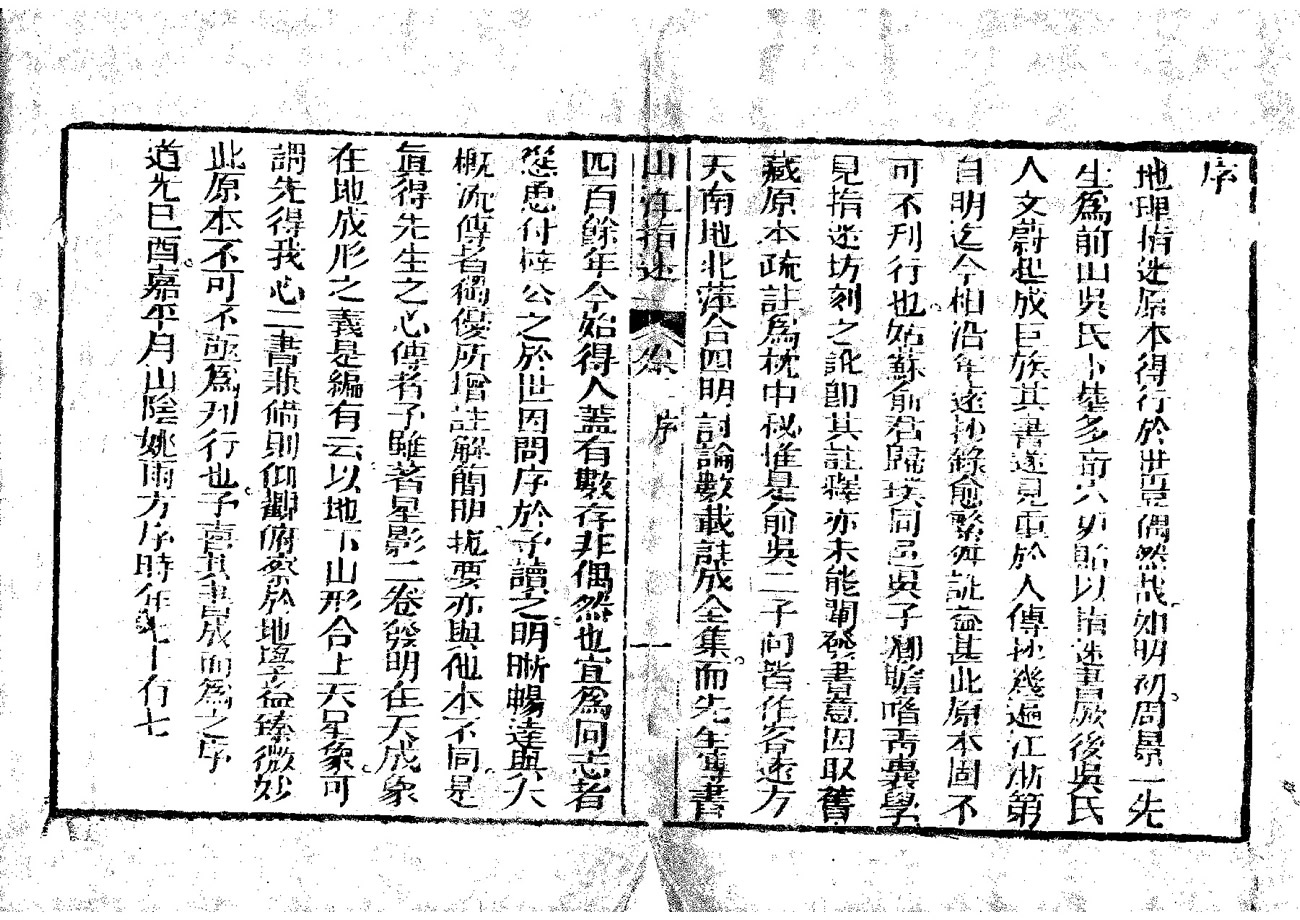 序
地理指迷原本得行於世豈偶然哉如明初。周景一先
生為前山吳氏卜塋多奇穴郊貽以指迷書厥後吳氏
人文蔚起成巨族其書遂見重於人傳抄幾遍江浙第
自明迄今相沿年遠抄錄愈繁舛訛益甚此原本固不
可不刊行也。姑蘇俞君歸璞同邑吳子瀨瞻嗜靑囊學
見指迷坊刻之訛卽其註釋亦未能闡發書意因取舊
藏原本疏註為枕中秘惟是俞吳二子向皆作客遠方
天南地北萍合四明討論數載註成全集。而先生專書
山洋指迷 卷 序 一
四百餘年今始得人蓋有數存非偶然也宜為同志者
慫恿付梓公之於世因問序於予讀之。明晰暢達與大
概流傳者獨優所增註解簡明扼要亦與他本不同。是
眞得先生之心傳者予雖著星影二卷發明在天成象
在地成形之義是編有云以地下山形合上天星象可
謂先得我心二書兼備則仰觀俯察於地學益臻微妙
此原本不可不亟為刊行也。予喜其書成而為之序
道光巳酉。嘉平月山陰姚雨方序時年七十有七